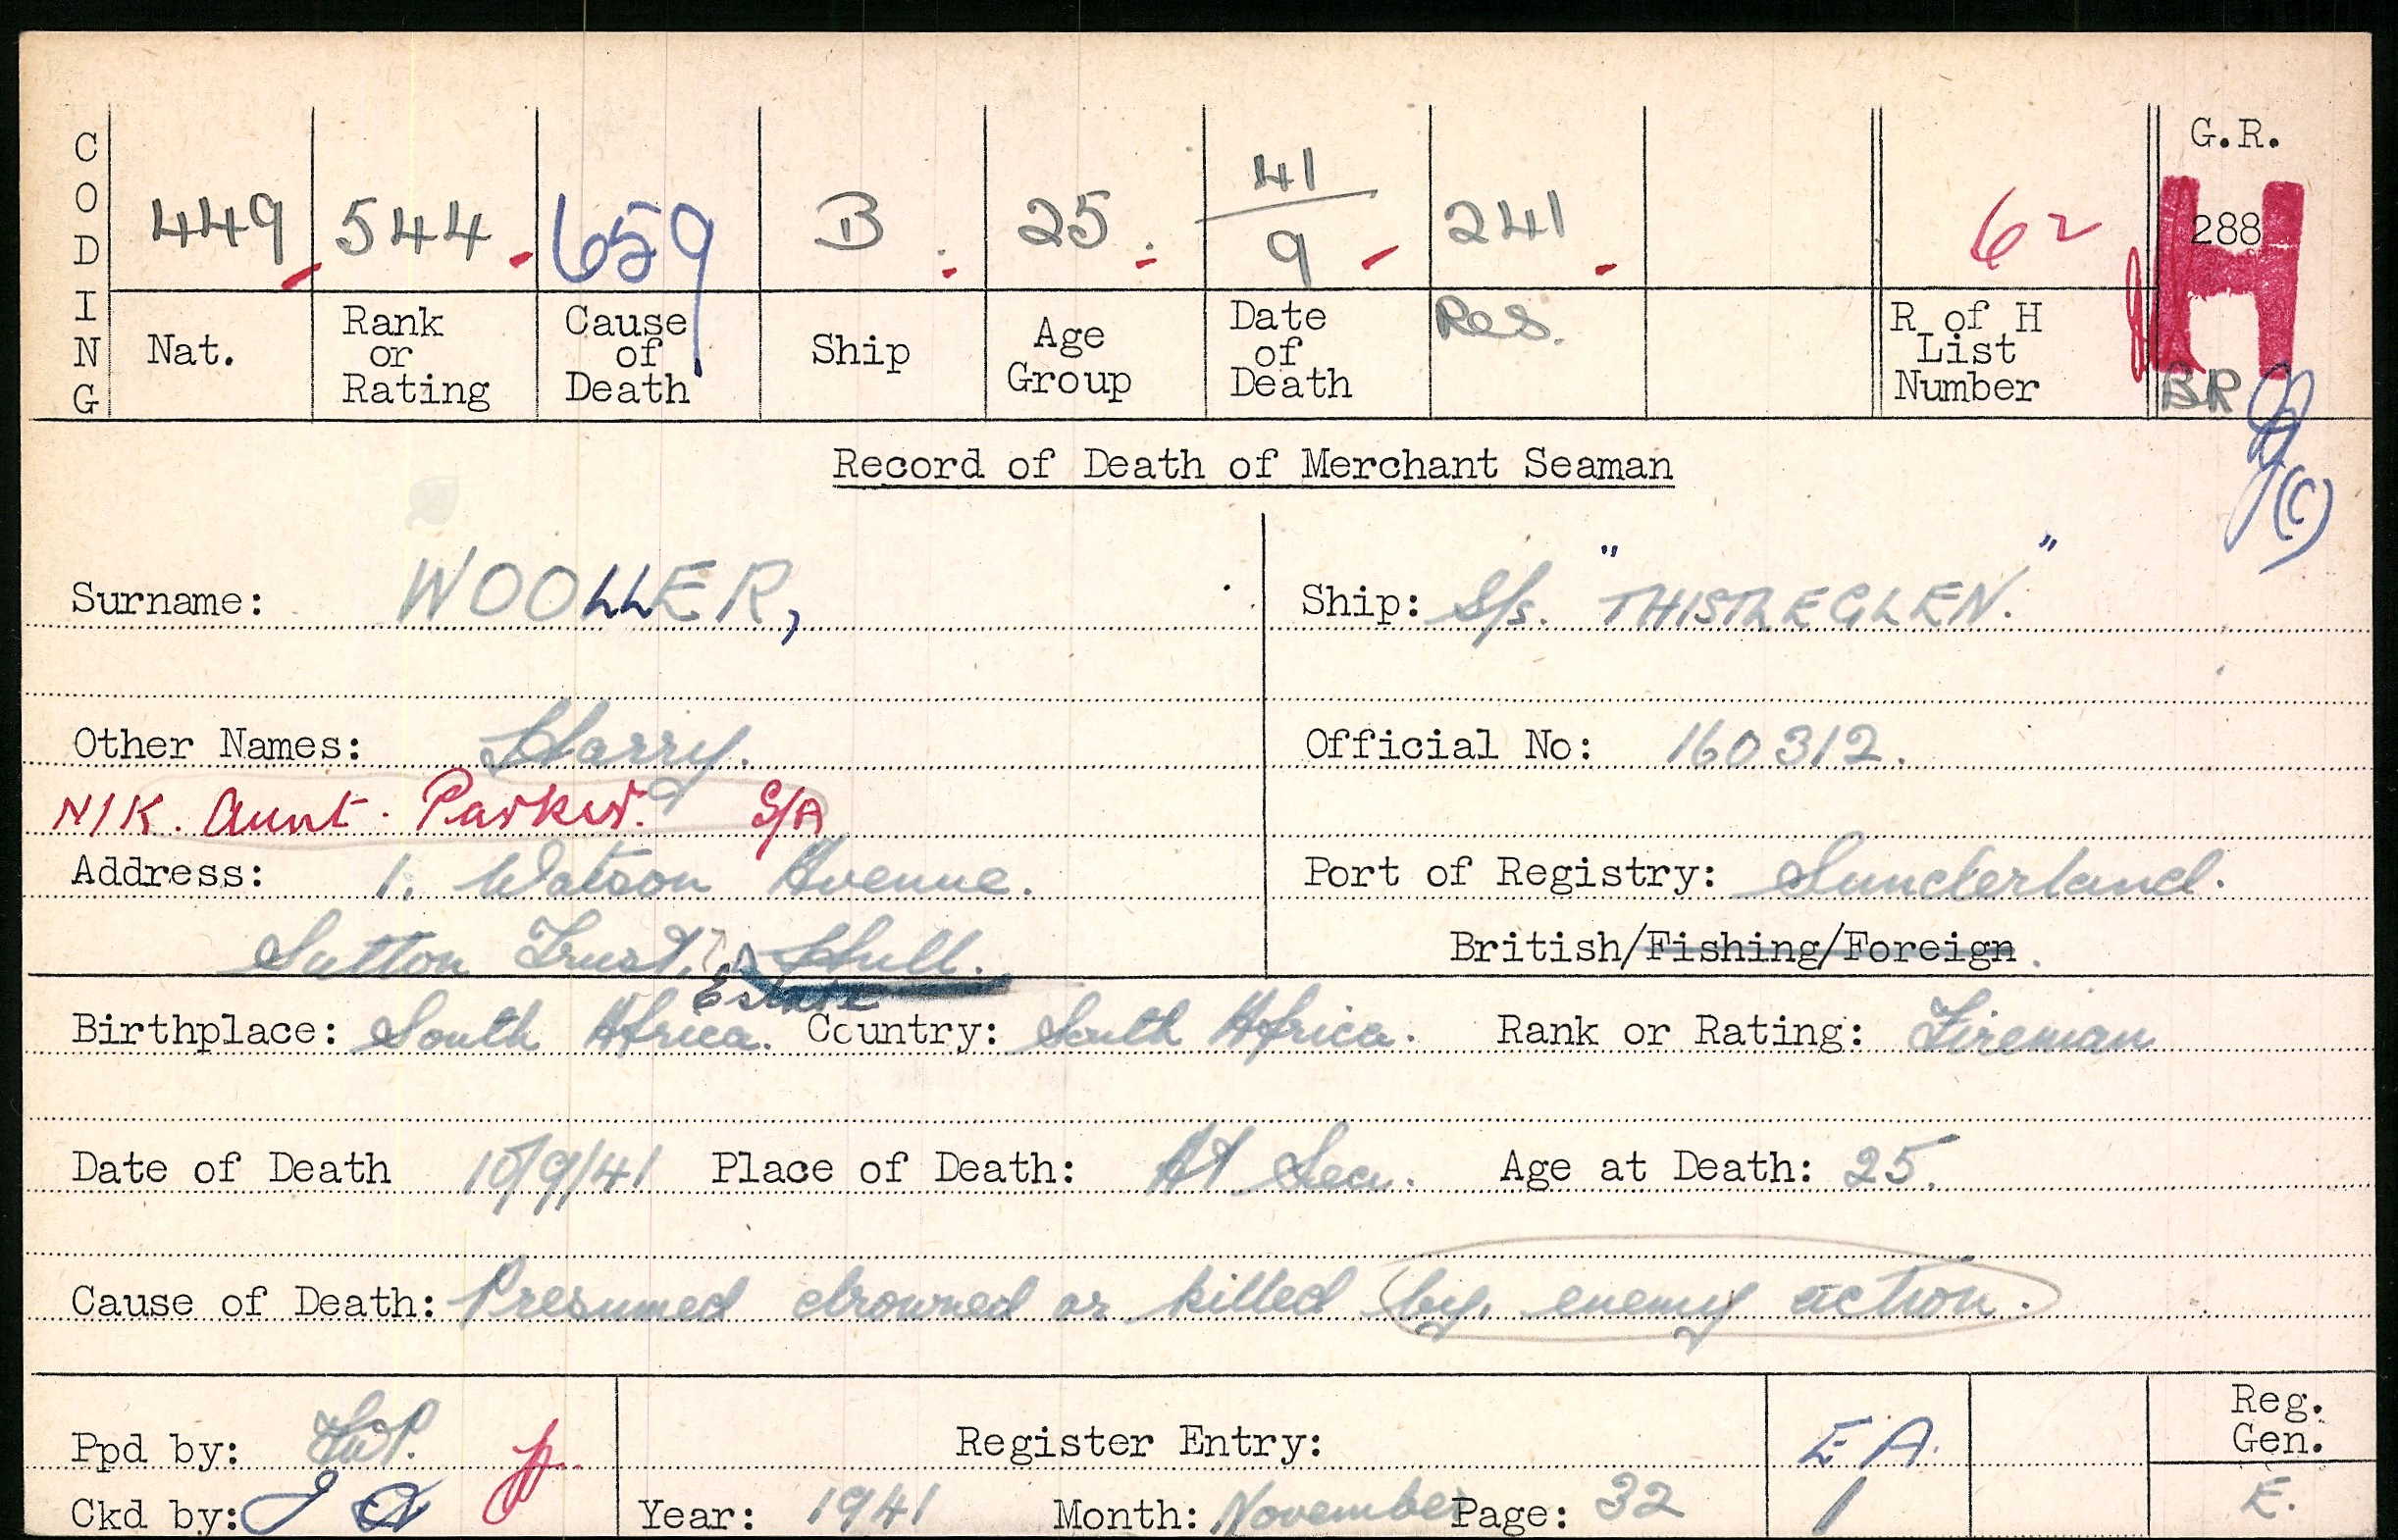 CODING
449 544 659 B 25 41/9 241 62
G.R.
288
H
Nat. Rank or Rating Cause of Death Ship Age Group Date of Death Res. R of H List Number BR
(C)
Record of Death of Merchant Seaman
Surname: WOOLLER, Ship: S/s. "THISTLEGLEN."
Other Names: Harry. Official No: 160312.
N/K. Aunt. Parker. S/A
Address: 1. Watson Avenue. Port of Registry: Sunderland.
Sutton Trust, Estate Hull. British/Fishing/Foreign.
Birthplace: South Africa. Country: South Africa. Rank or Rating: Fireman
Date of Death 10/9/41 Place of Death: At Sea. Age at Death: 25.
Cause of Death: Presumed drowned or killed by enemy action.
Ppd by: Register Entry: E A. Reg. Gen.
Ckd by: Year: 1941 Month: November Page: 32 1 E.